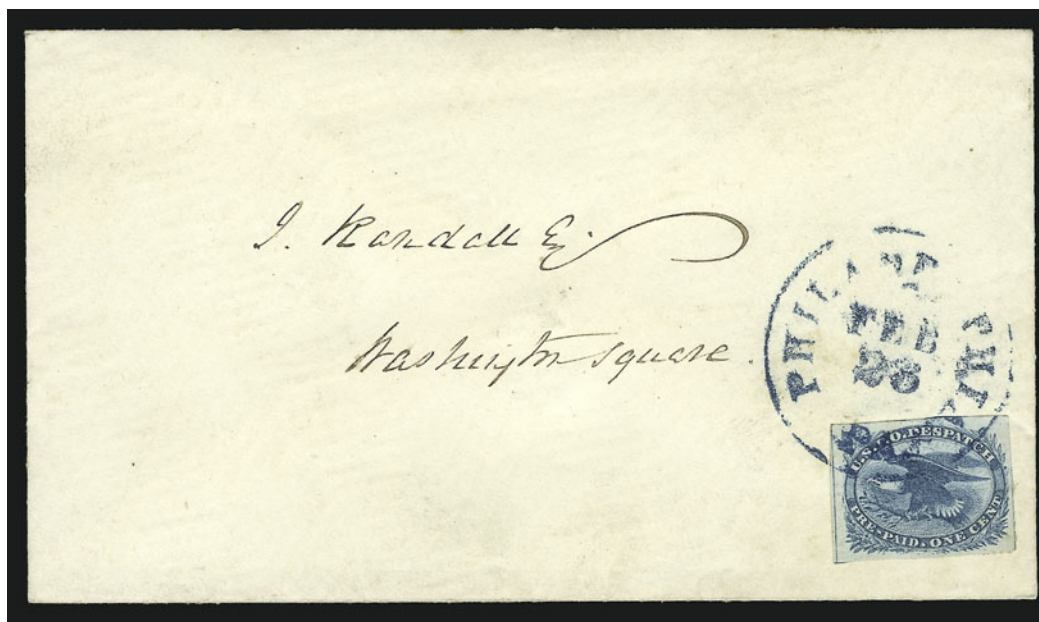 J. Randall Esq.
Washington Square.
PHILADELPHIA
FEB
23
U.S.P.O. DESPATCH
PRE-PAID. ONE CENT